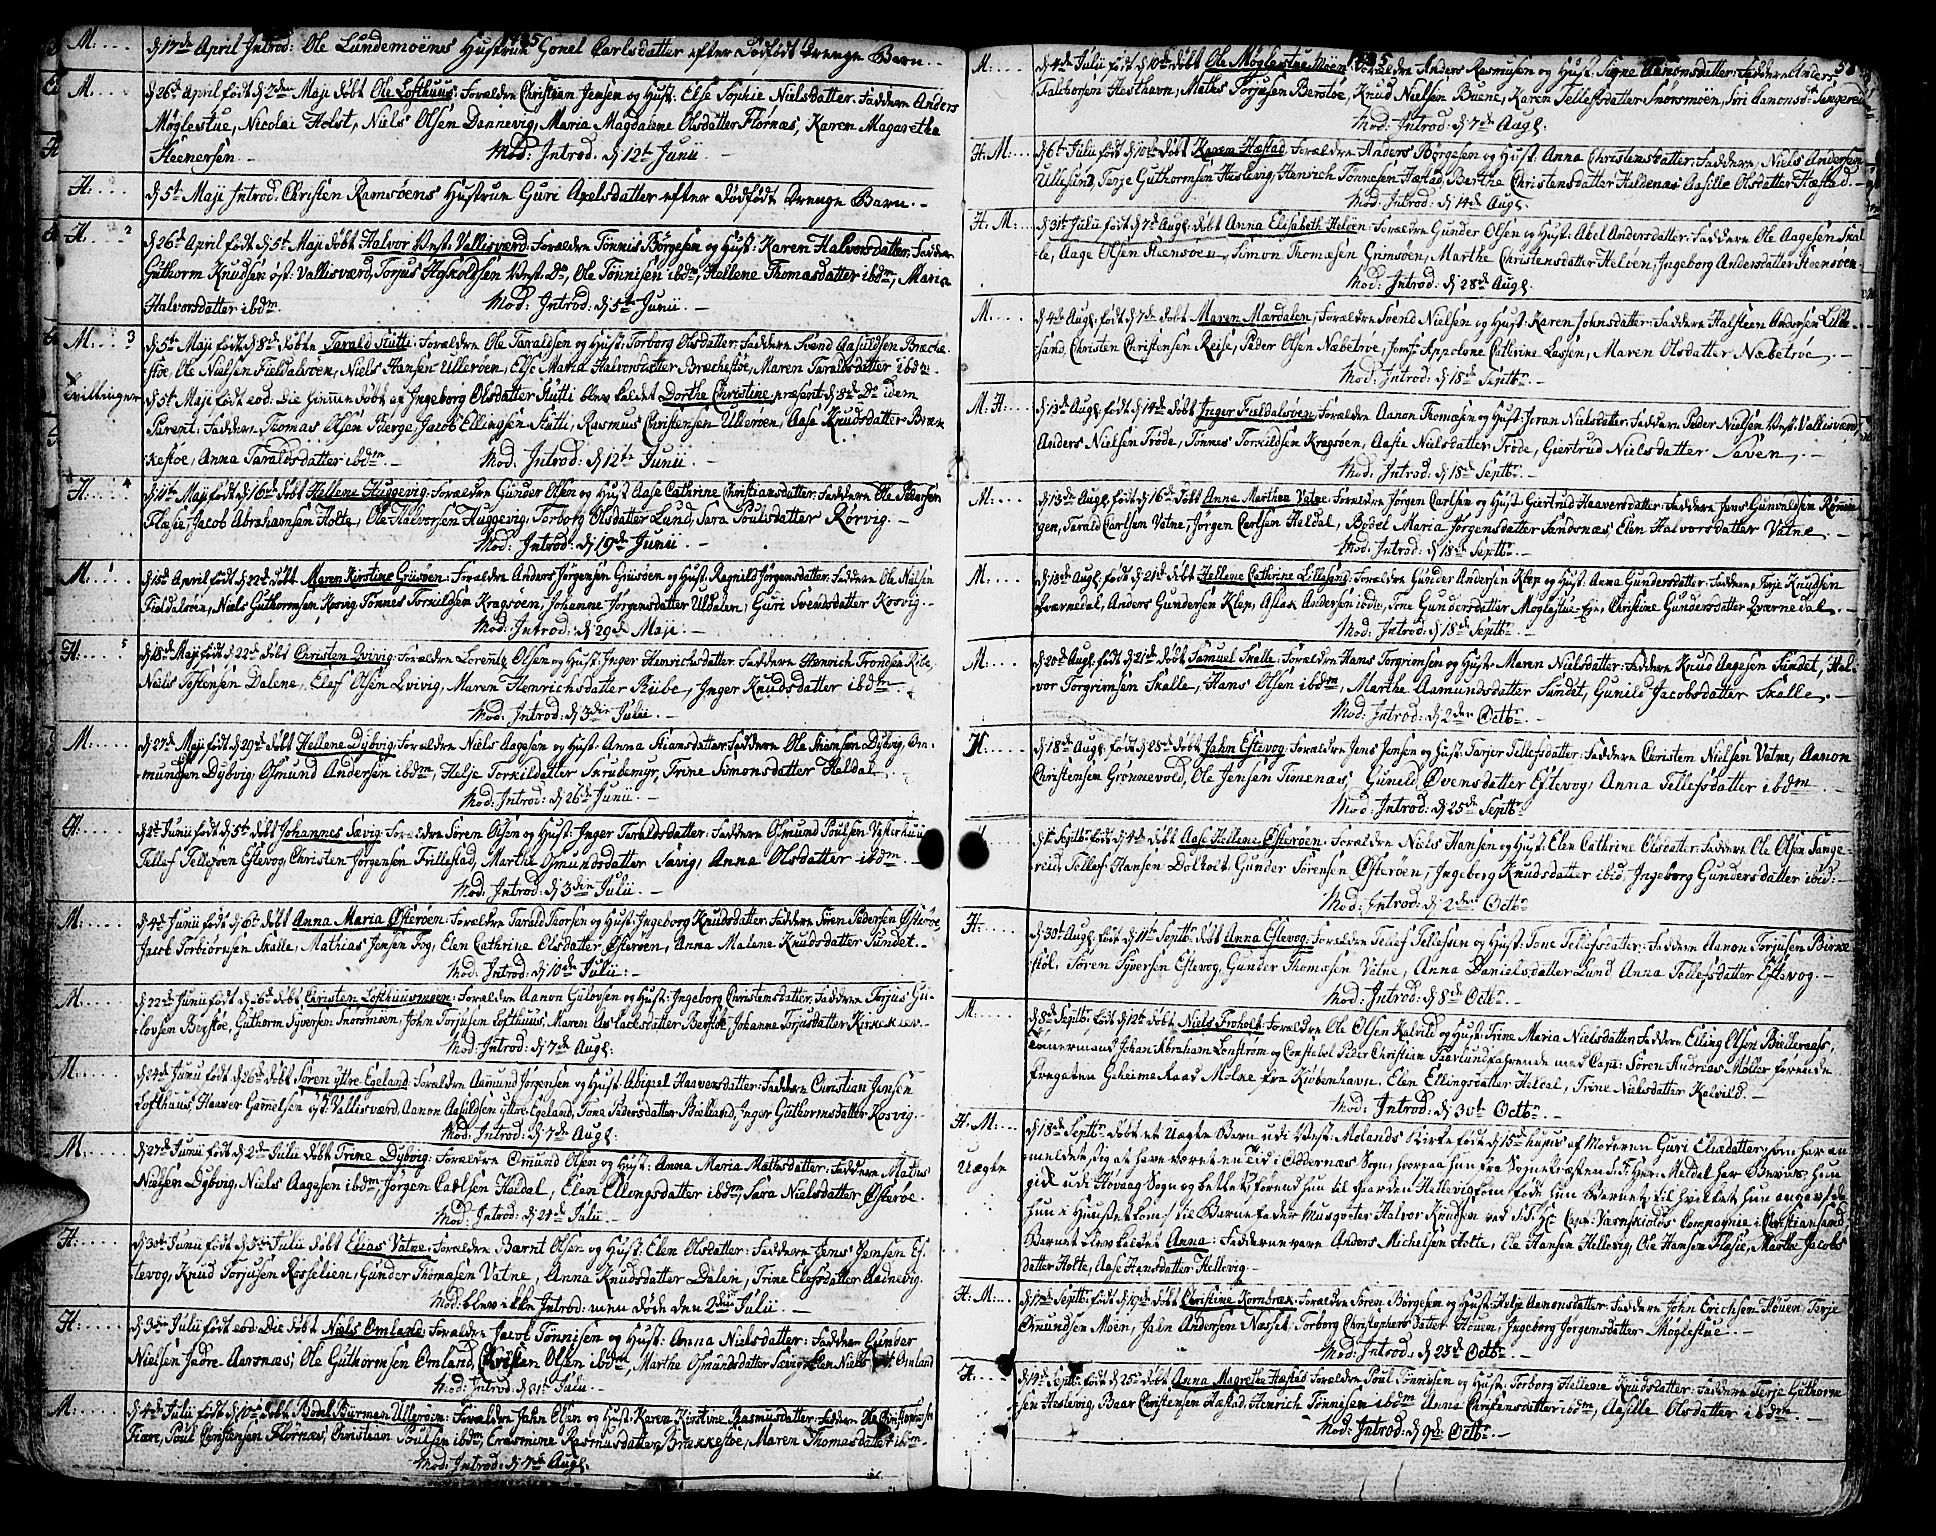 M: d 17de April Introd: Ole Lundemoënes Hustrue Gonel Carlsdatter efter Dødfødt Drenge Barn. –
M. d 26de April født d 2den Maji døbt Ole Lofthuus: Forældre Christian Jensen og Hust: Else Sophie Nielsdatter: Faddere Anders
Møglestue, Nicolai Holst, Niels Olsen Dannevig, Maria Magdalene Olsdatter Flornæs, Karen Magaretha
Steenersen. – Mod: Introd: d 12te Junii. –
H: d 5te Maji Introd: Christen Ramsöens Hustrue Guri Axelsdatter efter dødfødt Drenge Barn. –
H: 2 d 26de April født d 5te Maji døbt Halvor Vest: Vallisværd: Forældre Tönnis Börgesen og Hust: Karen Halvorsdatter: Faddere
Guthorm Knudsen öst: Vallisværd, Torjus Askoldsen Vest: Do, Ole Tönnisen ibdm, Hellene Thomasdatter ibdm, Maria
Halvorsdatter ibdm. Mod: Introd: d 5te Junii. –
M: 3 d 5te Maji født d 8de døbt Tarald Stutti: Forældre Ole Taraldsen og Hust: Torborg Olsdatter: Faddere Svend Aasuldsen Bræke-
støe, Ole Nielsen Fieldalsöen, Niels Hansen Ulleröen, Else Maria Halvorsdatter Brækestöe, Maren Taraldsdatter ibdm
Tvillinger d 5te Maji født eod: Die hjemmedøbt af Ingeborg Olsdatter Stutti blev kaldet Dorthe Christine, præsent: d 8de Do idem
Parent: Faddere Thomas Olsen Berge, Jacob Ellingsen Stutti, Rasmus Christensen Ulleröen, Aase Knudsdatter Bræk-
kestoe, Anna Taraldsdatter ibdm. – Mod: Introd: d 12te Junii. –
H: 4 d 11te Maji født d 16de døbt Hellene Huggevig: Forældre Gunder Olsen og Hust: Aase Cathrine Christiansdatter: Faddere Ole Pedersen
Flæsie, Jacob Abrahamsen Holte, Ole Halvorsen Huggevig, Torborg Olsdatter Lund, Sara Poulsdatter Rörvig. –
Mod: Introd: d 19de Junii. –
M: d 15de April født d 22de døbt Maren Kirstine Grüsöen: Forældre Anders Jörgensen Grüsöen og Hust: Ragnild Jörgensdatter: Faddere Ole Nielsen
Fieldalsöen, Niels Guthormsen Kosvig, Tönnes Torkildsen Kragsöen, Johanne Jörgensdatter Uldalen, Guri Svendsdatter Kosvig. –
Mod: Introd: d 29de Maji. –
H: 5 d 18de Maji født d 22de døbt Christen Qvivig: Forældre Lorentz Olsen og Hust: Inger Henrichsdatter: Faddere Henrich Trondsen Ribe,
Niels Tostensen Dalene, Elef Olsen Qvivig, Maren Henrichsdatter Riibe, Inger Knudsdatter ibdm. –
Mod: Introd: d 3die Julii. –
M: d 27de Maji født d 29de døbt Hellene Dybvig: Forældre Niels Aagesen og Hust: Anna Stiansdatter: Faddere Ole Stiansen Dybvig, Om-
mundsen Dybvig, Osmund Andersen ibdm, Helje Torkildatter Skrubemyr, Trine Simonsdatter Heldal. –
Mod: Introd: d 26de Junii. –
H: d 2de Junii født d 5te døbt Johannes Sævig: Forældre Sören Olsen og Hust: Inger Taraldsdatter: Faddere Osmund Poulsen Vesterhuus
Tellef Tellefsen Estevog, Christen Jörgensen Frillestad, Marthe Osmundsdatter Sævig, Anna Olsdatter ibdm. –
Mod: Introd: d 3die Julii. –
M: d 4de Junii født d 6te døbt Anna Maria Österöen: Forældre Tarald Thorsen og Hust: Ingeborg Knudsdatter: Faddere Sören Pedersen Österöe,
Jacob Torbiörnsen Skalle, Mathias Jensen Fog, Elen Cathrine Olsdatter Österöen, Anna Malene Knudsdatter Sundet. –
Mod: Introd: d 10de Julii: –
M: d 22de Junii født d 26de døbt Christen Lofthuusmoen: Forældre Aanon Gulovsen og Hust: Ingeborg Christensdatter: Faddere Torjus Gu-
lovsen Berstöe, Guthorm Syversen Snorsmöen, John Torjusen Lofthuus, Maren Aslacksdatter Berstöe, Johanne Torjusdatter Kirkekleev. –
Mod: Introd: d 7de Augl:
M: d 24de Junii født d 26de døbt Sören Yttre Egeland: Forældre Aamund Jörgensen og Hust: Abigael Haaversdatter: Faddere Christian Jensen
Lofthuus, Haaver Gamelsen öst: Vallisværd, Aanon Aasildsen Yttre Egeland, Tone Pedersdatter Biælland, Inger Guthormsdatter Kosvig. –
Mod: Introd: d 7de Augl:
M: d 27de Junii født d 2de Julii døbt Trine Dybvig: Forældre Omund Olsen og Hust: Anna Maria Mathisdatter: Faddere Mathis
Nielsen Dybvig, Niels Aagesen ibdm, Jörgen Carlsen Heldal, Elen Ellingsdatter ibdm, Sara Nielsdatter Österöe. –
Mod: Introd: d 24de Julii. –
H: d 30te Junii født d 3die Julii døbt Elias Vatne: Forældre Bærnt Olsen og Hust: Elen Olsdatter: Faddere Jens Jensen Es-
tevog, Knud Torjusen Rosselien, Gunder Thomasen Vatne, Anna Knudsdatter Dalen, Trine Elefsdatter Aadnevig.
Mod: blev ikke Introd: men døde den 2den Julii. –
H: d 3die Julii født eod: Die døbt Niels Omland: Forældre Jacob Tönnisen og Hust: Anna Nielsdatter: Faddere Gunder
Nielsen Indre Aarsnæs, Ole Guthormsen Omland, Christen Olsen ibdm, Marthe Osmundsdatter Sævig, Elen Niels Omland
Mod: Introd: d 31te Julii. –
M: d 4de Julii født d 10de døbt Bodel Burman Ulleröen: Forældre John Olsen og Hust: Karen Kirstine Rasmusdatter: Faddere Ole Christophersen
Fiære, Poul Christensen Flornæs, Christian Poulsen ibdm, Erasmine Rasmusdatter Brækkestöe, Maren Thomasdatter ibdm –
Mod: Introd: d 7de Augl:
M: d 4de Julii født d 10de døbt Ole Møglestue Moen: Forældre Anders Rasmusen og Hust: Signe Aanonsdatter: Faddere Anders
Falchorsen Hesthavn, Mathis Torjusen Berstöe, Knud Nielsen Buene, Karen Tellefsdatter Snörsmöen, Siri Aanonsd: Sangereid
Mod: Introd: d 7de Augl:
H. M: d 6te Julii født d 10de døbt Karen Hæstad: Forældre Anders Börgesen og Hust: Anna Christensdatter: Faddere, Niels Andersen
Ullesund, Terje Guthormsen Heslevig, Henrich Tönnesen Hæstad, Berthe Christensdatter Haldenæs Aasille Olsdatter Hæstad. –
Mod: Introd: d 14de Augl.
H. M: d 31te Julii født d 7de Augl: døbt Anna Elisabeth Heloen: Forældre Gunder Olsen og Hust: Abel Andersdatter: Faddere Ole Aagesen Skal-
le, Aage Olsen Steensöen, Simon Thomæsen Grimsöen, Marthe Christensdatter Helöen, Ingeborg Andersdatter Steensöen.
Mod: Introd: d 28de Augl:
M. d 4de Augl: født d 7de døbt Maren Mærdalen: Forældre Svend Nielsen og Hust: Karen Johnsdatter: Faddere Halsteen Andersen Lille-
sand, Christen Christensen Reise, Peder Olsen Næbetroe, Jomf: Appolone Cathrine Lassen, Maren Olsdatter Næbetröe. –
Mod: Introd: d 18de Septbr. –
M. H: d 13de Augl: født d 14de døbt Inger Fieldalsöen: Forældre Aanon Thomæsen og Hust: Joran Nielsdatter: Faddere Peder Nielsen Vest: Vallisværd,
Anders Nielsen Tröde, Tönnes Torkildsen Kragsöen, Aasie Nielsdatter Tröde, Giertrud Nielsdatter Saven. –
Mod: Introd: d 18de Septbr. –
M. d 13de Augl: født d 16de døbt Anna Marthea Vatne: Forældre Jörgen Carlsen og Hust: Giertrud Haaversdatter: Faddere Jens Gunvaldsen Rönnin-
gen, Tarald Carlsen Vatne, Jörgen Carlsen Heldal, Bodel Maria Jörgensdatter Sandsnæs, Elen Halvorsdatter Vatne. –
Mod: Introd: d 18de Septbr. –
M: d 18de Augl: født d 21de døbt Hellene Cathrine Lillesand: Forældre Gunder Andersen Klep og Hust: Anna Gundersdatter: Faddere Terje Knudsen
Qværnedal, Anders Gundersen Klep, Aslak Andersen ibdm, Tone Gundersdatter Moglestue-Eje, Christine Gundersdatter Qværnedal. –
Mod: Introd: d 18de Septbr. –
M: d 20de Augl: født d 21de døbt Samuel Skalle: Forældre Hans Torgrimsen og Hust: Maren Nielsdatter: Faddere Knud Aagesen Sundet, Hal-
vor Torgrimsen Skalle, Hans Olsen ibdm, Marthe Aamundsdatter Sundet, Gunild Jacobsdatter Skalle. –
Mod: Introd: d 2den Octbr. –
H: d 18de Augl: født d 28de døbt Jahn Estevog: Forældre Jens Jensen og Hust: Tarjer Tellefsdatter: Faddere Christen Nielsen Vatne, Aanon
Christensen Grönnevold, Ole Jensen Timenæs, Gunild Övensdatter Estevog, Anna Tellefsdatter ibdm. –
Mod: Introd: d 25de Septbr
d 1te Septbr: født d 4de døbt Aase Hellene Österöen: Forældre Niels Hansen og Hust: Elen Cathrine Olsdatter: Faddere Ole Olsen Sange-
reid, Tellef Hansen Dolholt, Gunder Sörensen Österöen, Ingeborg Knudsdatter ibid, Ingeborg Gundersdatter ibid: –
Mod: Introd: d 2den Octbr. –
H: d 30te Augl: født d 11te Septbr døbt Anna Estevog: Forældre Tellef Tellefsen og Hust: Tone Tellefsdatter: Faddere Aanon Torjusen Birke-
stöl, Sören Syversen Estevog, Gunder Thomæsen Vatne, Anna Danielsdatter Lund Anna Tellefsdatter Estevog. –
Mod: Introd: d 8de Octbr. –
M: d 8de Septbr: født d 12te døbt Niels Froholt: Forældre Ole Olsen Kalvild og Hust: Trine Maria Nielsdatter: Faddere Elling Olsen Biælleraas,
Tömermand Johan Abraham Lonström og Constabel Peder Christian Faarlund farende med Capt: Sören Andreas Möller förende
Fregatten Geheime Raad Molke fra Kiöbenhavn. Elen Ellingsdatter Heldal, Trine Nielsdatter Kalvild. –
Mod: Introd: d 30te Octbr. –
H. M: Uægte d 18de Septbr døbt et Uægte Barn udi Vest: Molands Kirke født d 15de hujus af Moderen Guri Eliædatter, som har an-
meldet sig at have været en Tid i Oddernæs Sogn, hvorpaa hun fra Sogne Præsten S:T: Herr Meldal har Beviis, Hun
gik udi Høvaag Sogn og betlet, förend hun til Gaarden Hellevig kom, föde hun Barnet, til hvilket hun angav sde
hun i Huuset kom: til Barne Fader Musqveter Halvor Knudsen ved S:T: Hr Capt: Varnskiolds Compagnie i Christiansand,
Barnet blev kaldet Anna: Fadderne vare Anders Michelsen Holte, Ole Hansen Hellevig, Ole Hansen Flæsie, Marthe Jacobs-
datter Holte, Aase Hansdatter Hellevig. –
H. M: d 17de Septbr: født d 19de døbt Christine Kornbræk: Forældre Sören Börgesen og Hust: Helje Aanonsdatter: Faddere John Erichsen Houen Terje
Omundsen Moen, John Andersen Nasset, Torborg Christophersdatter Houen, Ingeborg Jörgensdatter Møglestue. –
Mod: Introd: d 23de Octbr. –
H: d 19de Septbr: født d 25de døbt Anna Magrethe Hæstad Forældre Poul Tönnesen og Hust: Torborg Hellene Knudsdatter: Faddere Terje Guthorm-
sen Heslevig, Baar Christensen Hæstad, Henrich Tönnesen ibdm Anna Christensdatter ibdm, Aasille Olsdatter ibdm. –
Mod: Introd: d 9de Octbr. –